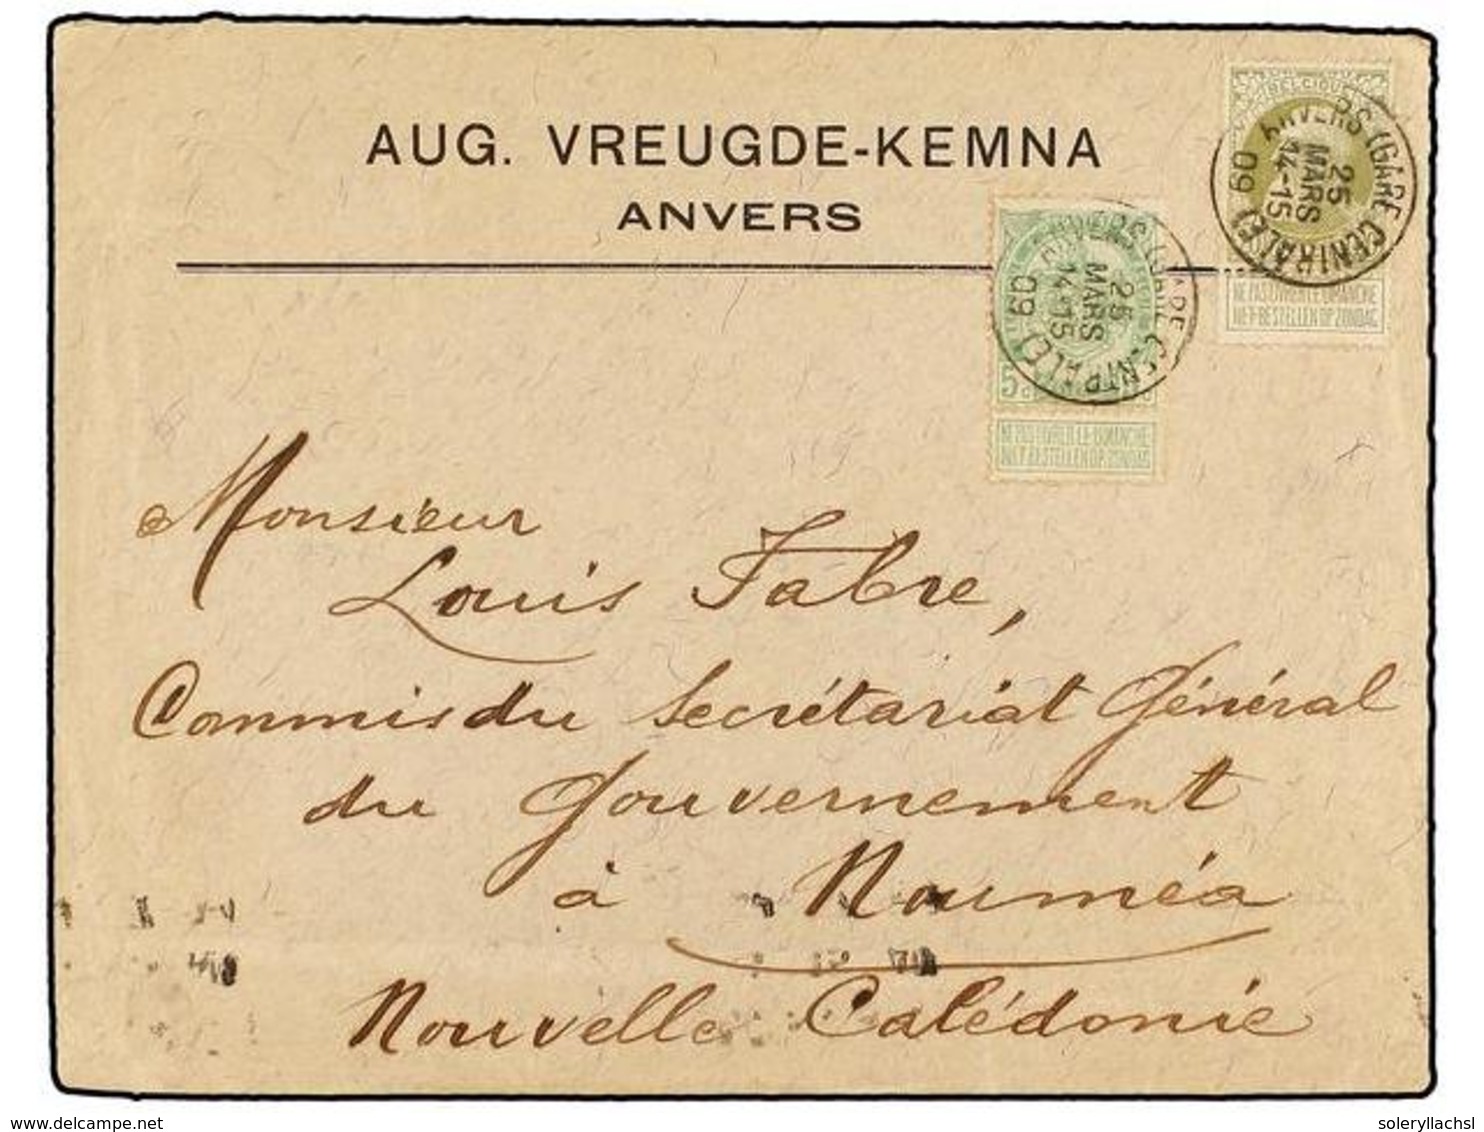 AUG. VREUGDE-KEMNA
ANVERS
BELGIQUE
ANVERS (GARE CENTRALE)
25
MARS
14-15
09
NE PAS LIVRER LE DIMANCHE
NIET-BESTELLEN OP ZONDAG
ANVERS (GARE CENTRALE)
25
MARS
14-15
09
5c
NE PAS LIVRER LE DIMANCHE
NIET BESTELLEN OP ZONDAG
Monsieur
Louis Fabre,
Commis du Secrétariat Général
du Gouvernement
à Nouméa
Nouvelle Calédonie
delcampe.net
soleryllachsl